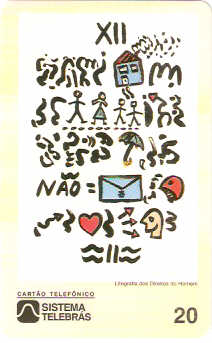 XII
NÃO =
Litografia dos Direitos do Homem
CARTÃO TELEFÔNICO
SISTEMA
TELEBRÁS
20